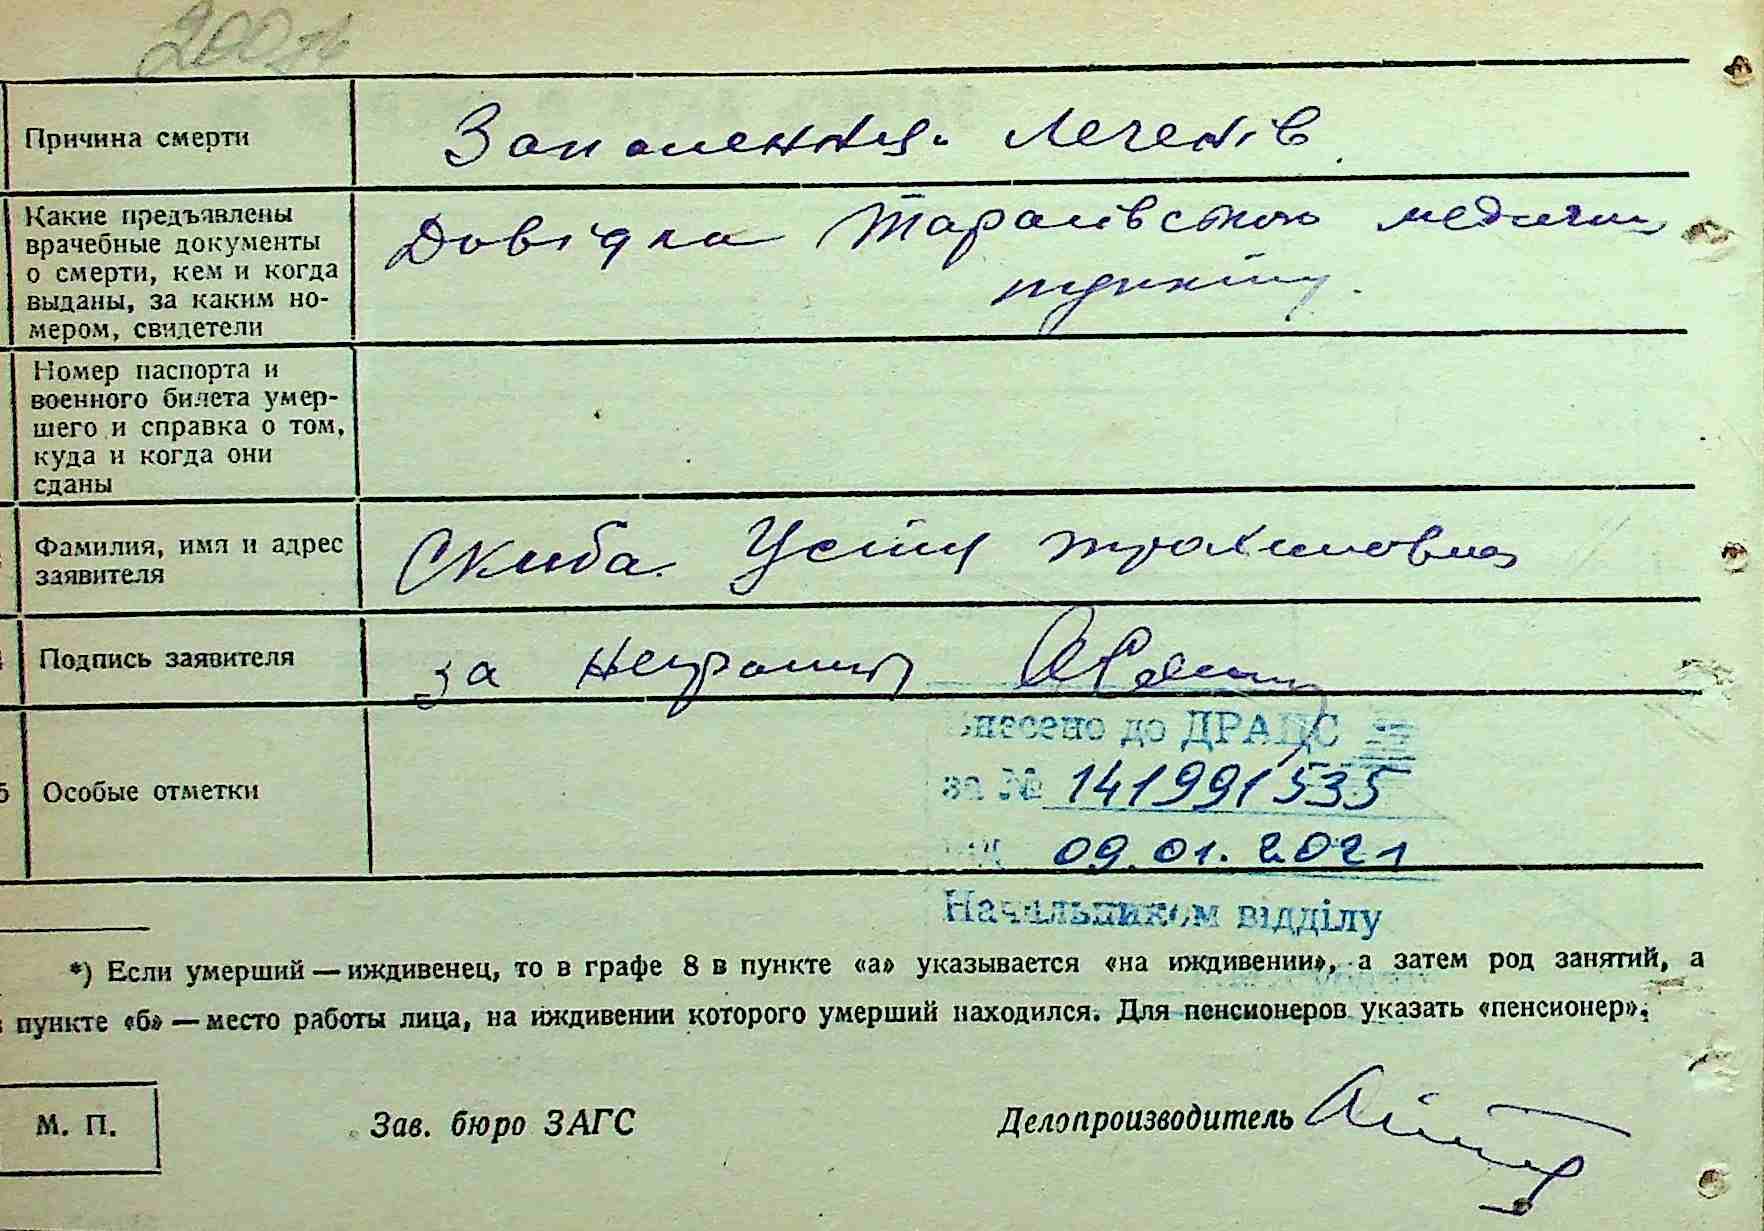 Причина смерти
Запалення легенів.
Какие предъявлены
врачебные документы
о смерти, кем и когда
выданы, за каким но-
мером, свидетели
Довідка медичн
пункту.
Номер паспорта и
военного билета умер-
шего и справка о том,
куда и когда они
сданы
Фамилия, имя и адрес
заявителя
Скиба Устя
Подпись заявителя
за
Внесено до ДРАЦС
за № 141991535
від 09.01.2021
Начальником відділу
5
Особые отметки
*) Если умерший — иждивенец, то в графе 8 в пункте «а» указывается «на иждивении», а затем род занятий, а
в пункте «б» — место работы лица, на иждивении которого умерший находился. Для пенсионеров указать «пенсионер».
М. П.
Зав. бюро ЗАГС
Делопроизводитель